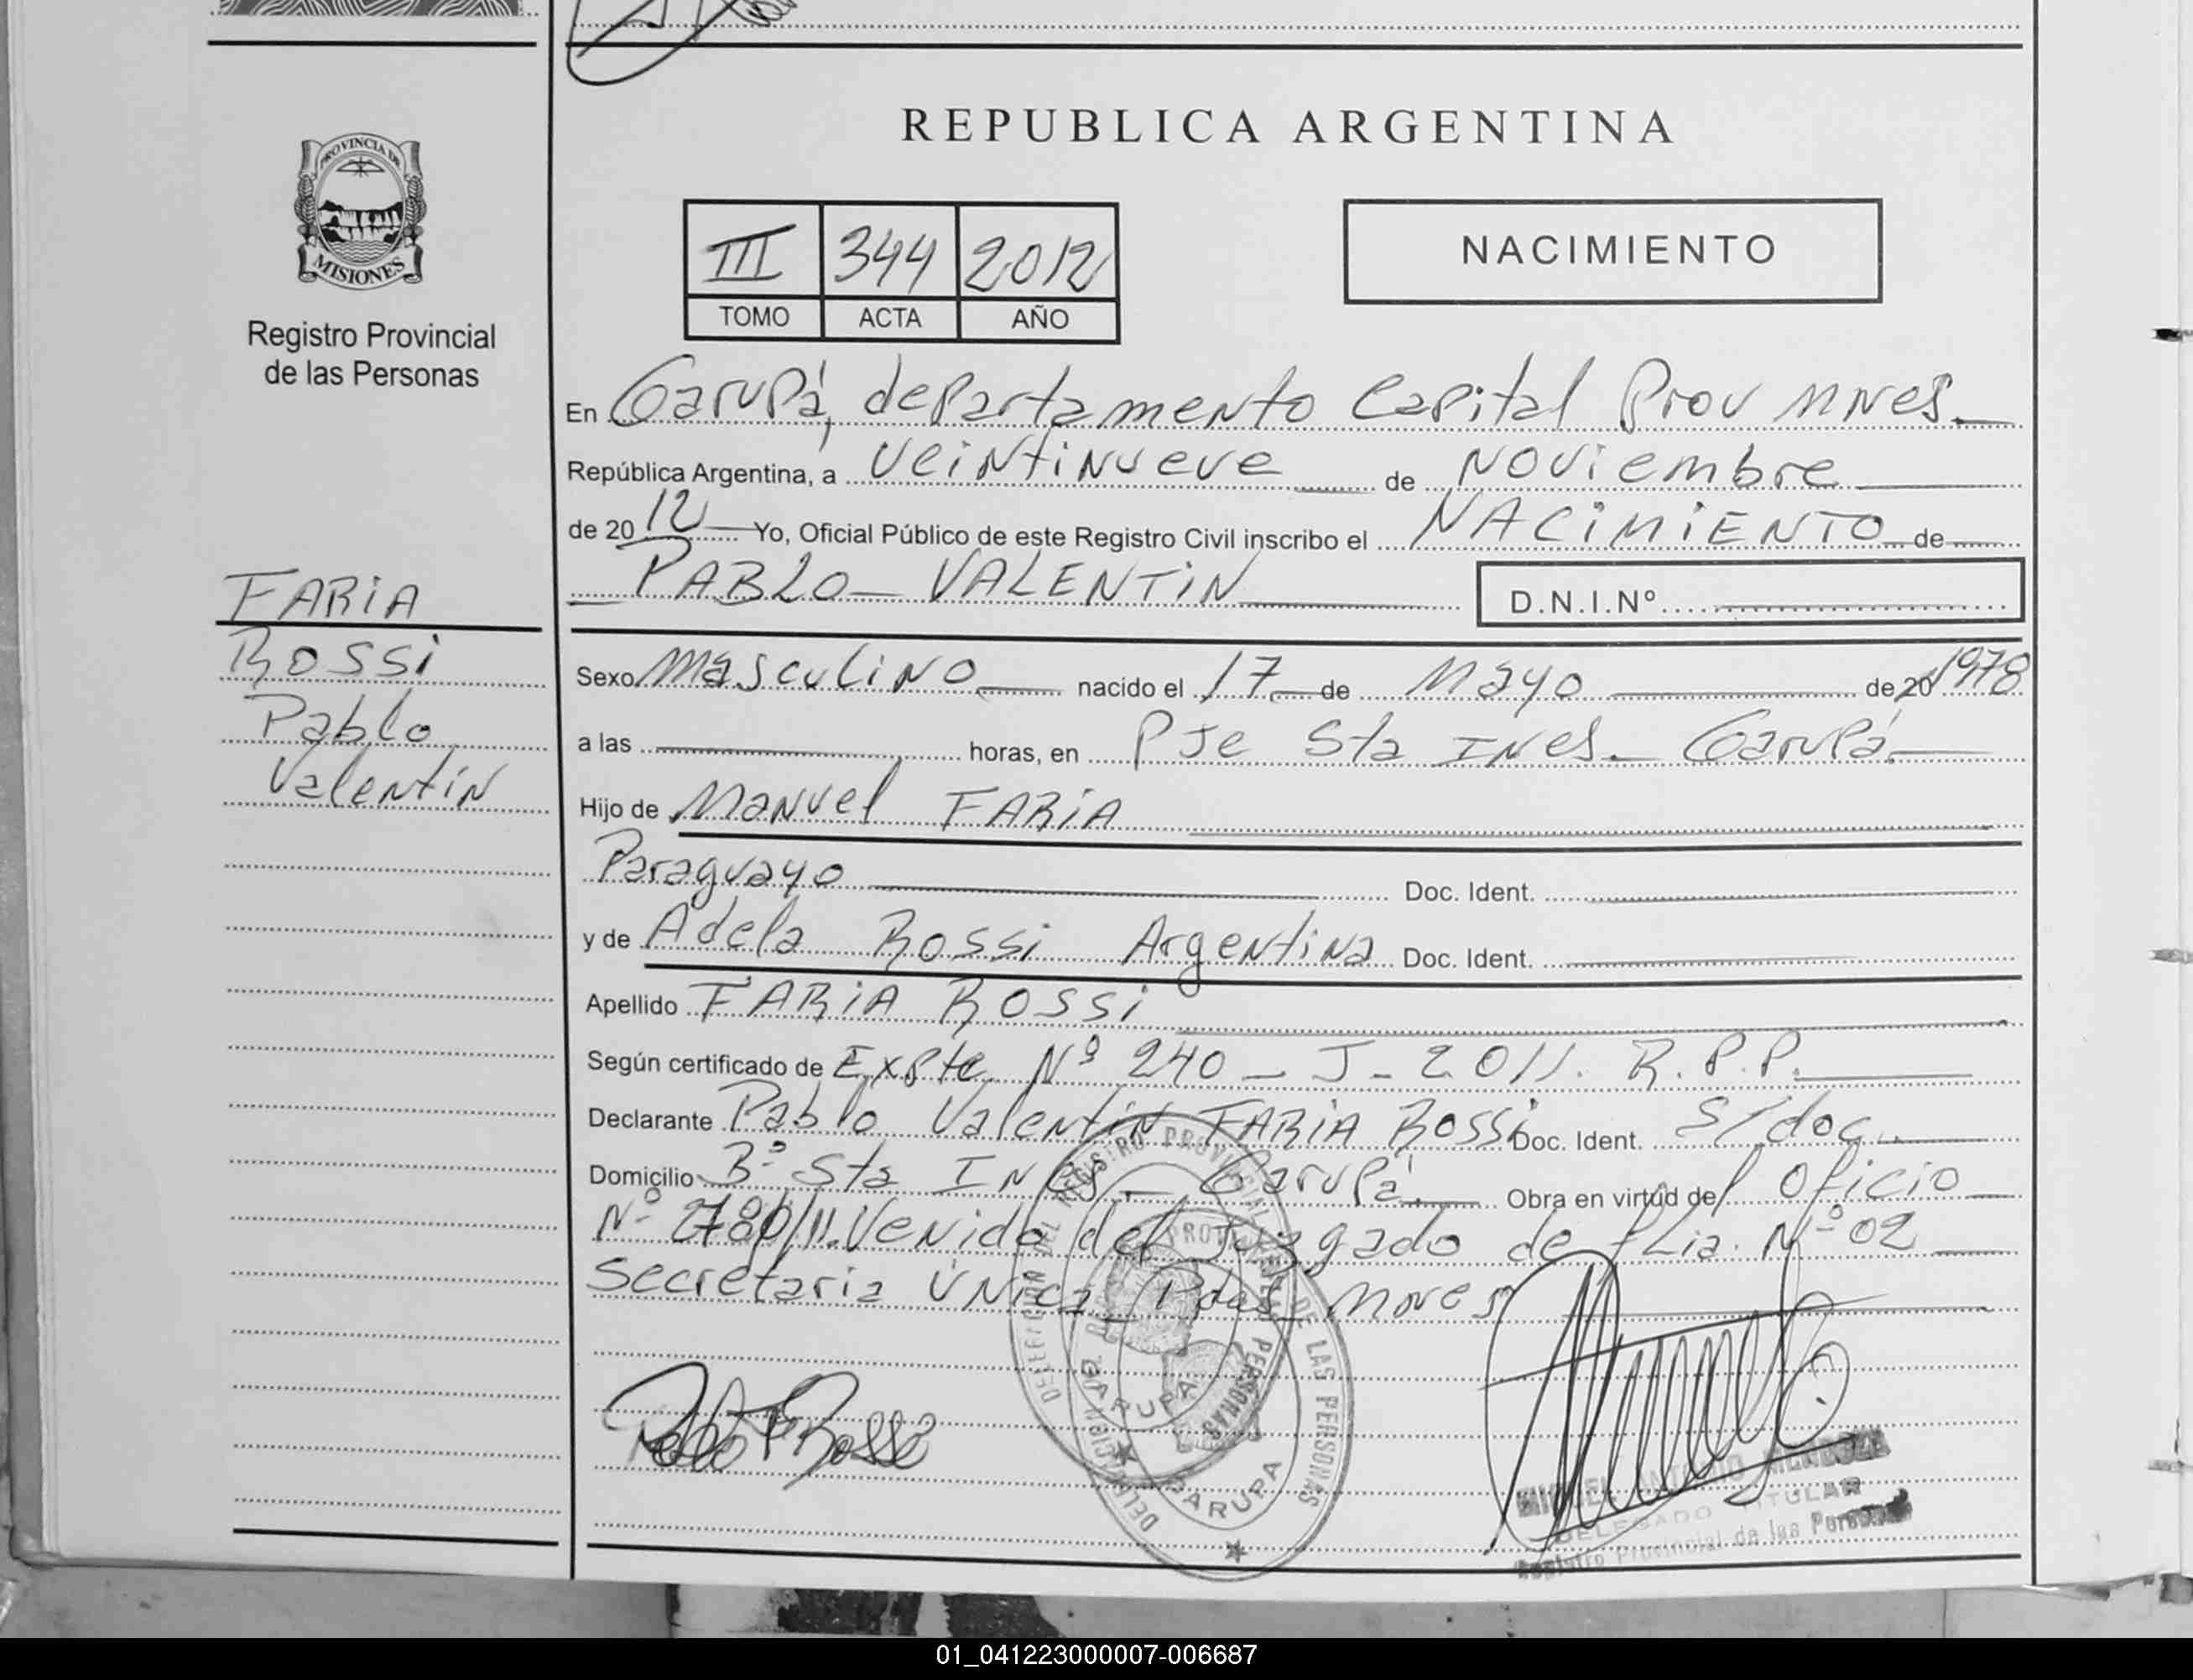 REPUBLICA ARGENTINA
PROVINCIA DE
MISIONES
Registro Provincial
de las Personas
III 344 2012
TOMO ACTA AÑO
NACIMIENTO
En Garupá, departamento Capital Prov Mnes.
República Argentina, a veintinueve de Noviembre
de 2012 Yo, Oficial Público de este Registro Civil inscribo el NACIMIENTO de
PABLO VALENTIN
D.N.I.Nº
FARIA
ROSSI
Pablo
Valentín
Sexo Masculino nacido el 17 de Mayo de 20 1978
a las horas, en Pje Sta Ines - Garupá
Hijo de Manuel FARIA
Paraguayo Doc. Ident.
y de Adela Rossi Argentina Doc. Ident.
Apellido FARIA ROSSI
Según certificado de Expte Nº 240 - J - 2011. R.P.P.
Declarante Pablo Valentín FARIA ROSSI Doc. Ident. S/doc.
Domicilio Bº Sta Ines - Garupá. Obra en virtud del Oficio
Nº 2780/11. Venido del Juzgado de flia. Nº 02
Secretaria Única Pdas Mnes
DELEGACION DEL REGISTRO PROVINCIAL DE LAS PERSONAS
GARUPA
GARUPA
Pablo F Rossi
MIGUEL ANTONIO MENDOZA
DELEGADO TITULAR
Registro Provincial de las Personas
01_041223000007-006687